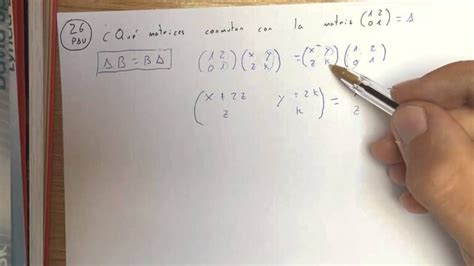 26 PAU ¿Qué matrices conmutan con la matriz (1 2 / 0 1) = A
A B = B A (1 2 / 0 1) (x y / z k) = (x y / z k) (1 2 / 0 1)
(x + 2z y + 2k / z k) =